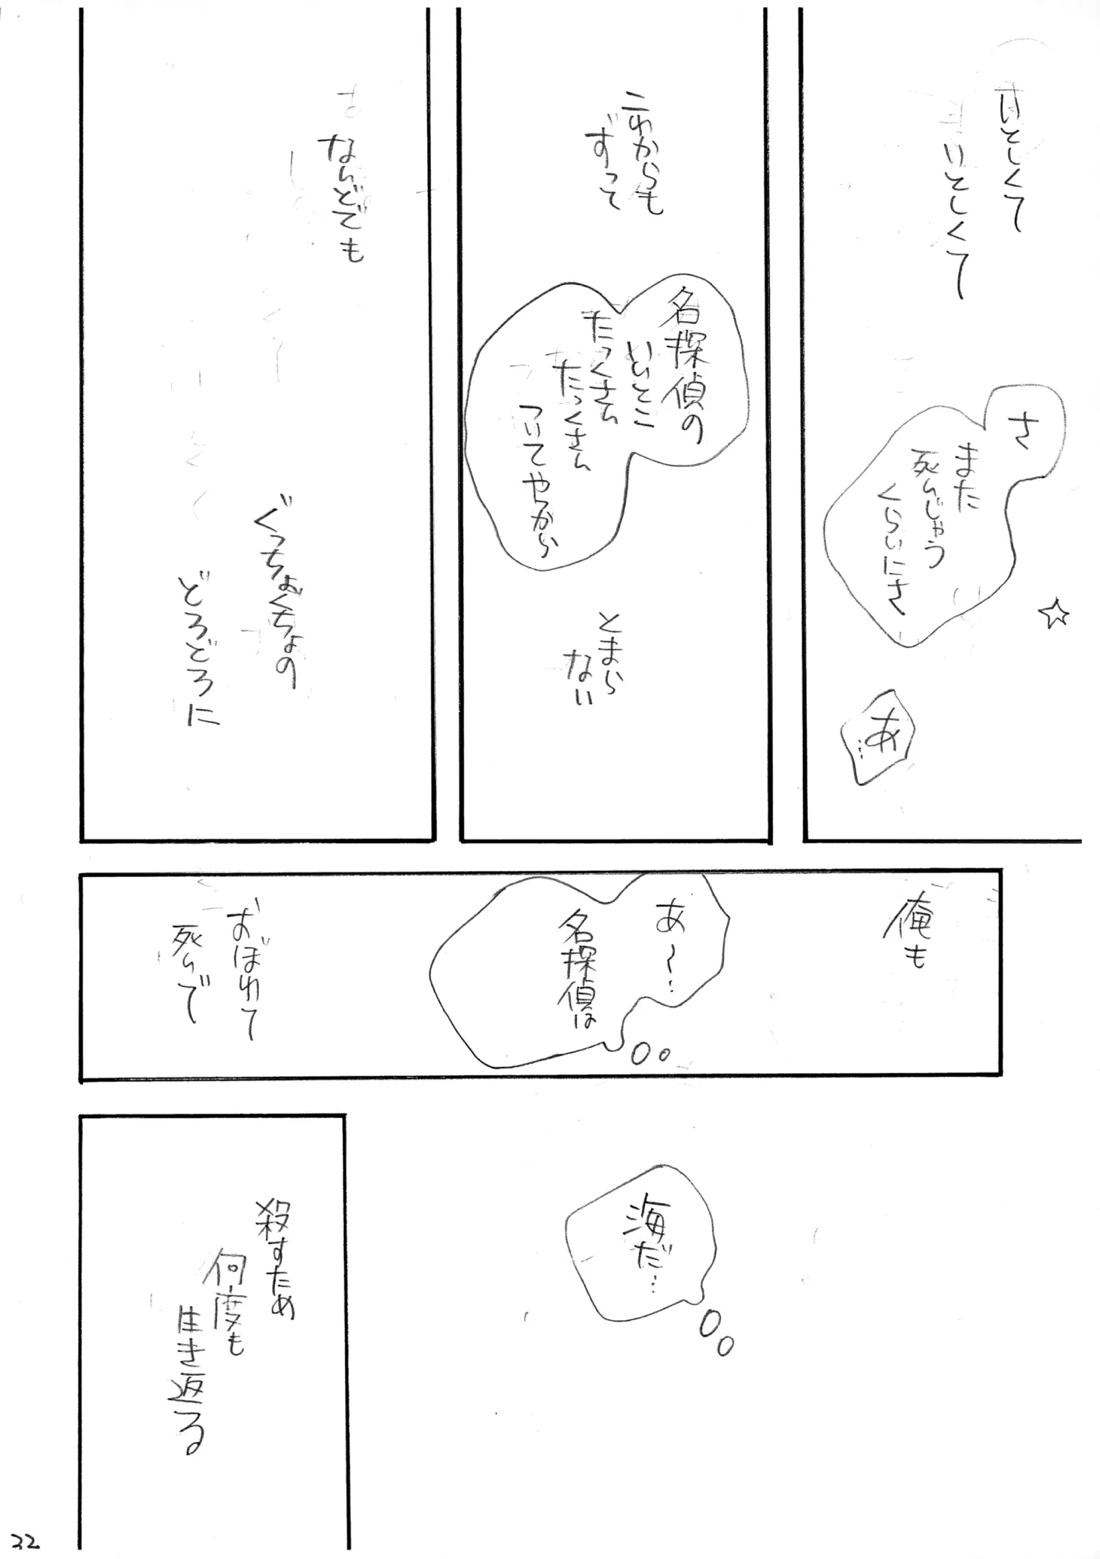 いとしくて
いとしくて
さ
また
死んじゃう
くらいにさ
☆
あ
…
これからも
ずって
名探偵の
いいとこ
たっくさん
たっくさん
ついてやるから
とまら
ない
なんどでも
ぐっちょぐちょの
どろどろに
俺も
あ～…
名探偵は
おぼれて
死んで
海だ…
殺すため
何度も
生き返る
22